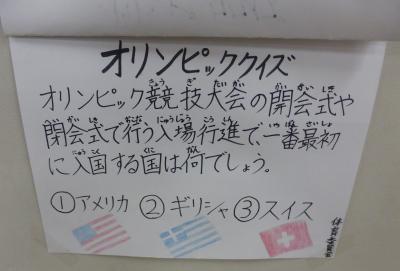 オリンピッククイズ
オリンピック競技大会の開会式や
閉会式で行う入場行進で、一番最初
に入国する国は何でしょう。
①アメリカ ②ギリシャ ③スイス
体育委員会